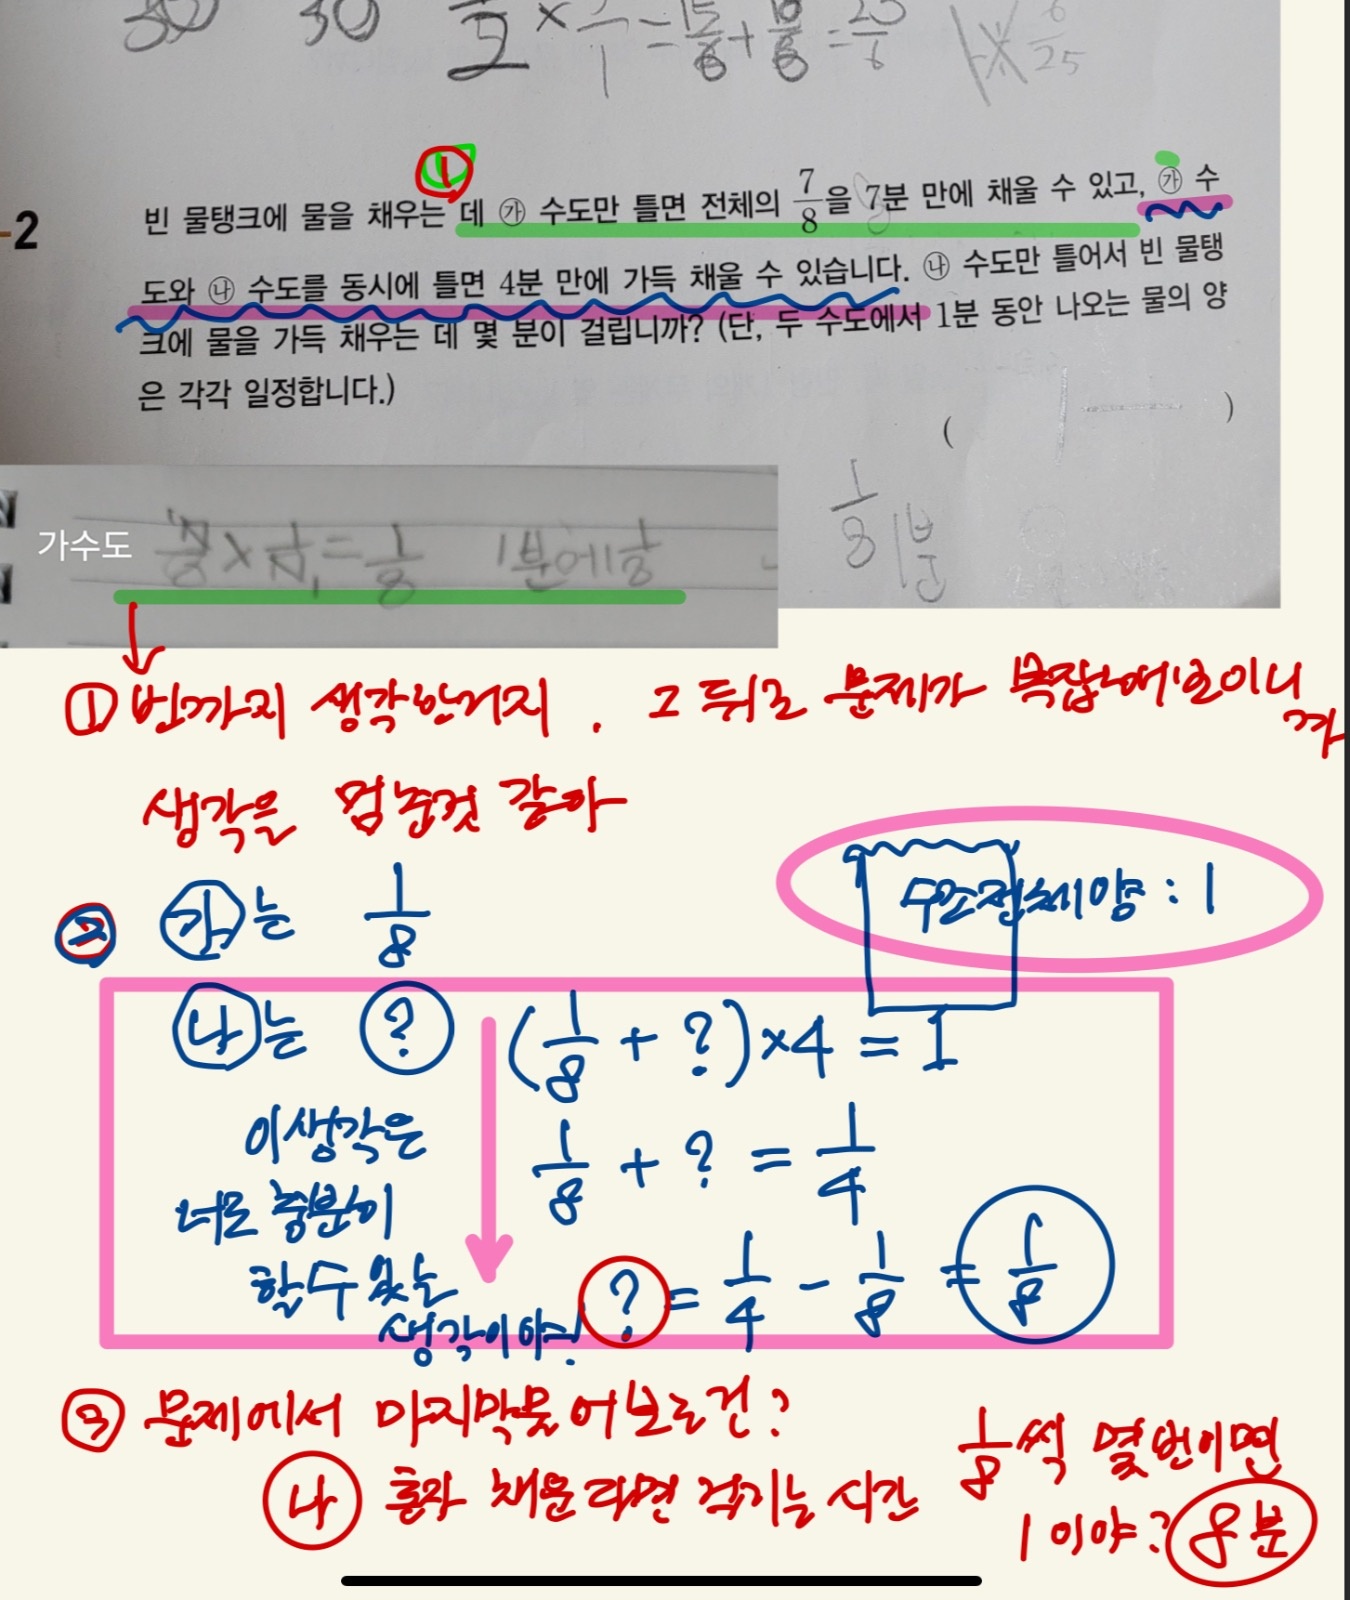 30 30 × = + = 25/6 6/25
①
-2
빈 물탱크에 물을 채우는 데 ㉮ 수도만 틀면 전체의 7/8을 7분 만에 채울 수 있고, ㉮ 수
도와 ㉯ 수도를 동시에 틀면 4분 만에 가득 채울 수 있습니다. ㉯ 수도만 틀어서 빈 물탱
크에 물을 가득 채우는 데 몇 분이 걸립니까? (단, 두 수도에서 1분 동안 나오는 물의 양
은 각각 일정합니다.)
( )
1/8 1분
가수도 7/8 × 1/7 = 1/8 1분에 1/8
①번까지 생각한거지. 그 뒤로 문제가 복잡해보이니
까
생각을 멈춘것 같아
수조전체양 : 1
② ㉮는 1/8
㉯는 ? (1/8 + ?) × 4 = 1
이생각은
1/8 + ? = 1/4
너도 충분이
할수 있는
? = 1/4 - 1/8 = 1/8
생각이야!
③ 문제에서 마지막 묻어보는건?
㉯ 혼자 채운다면 걸리는 시간
1/8씩 몇번이면
1이야? 8분